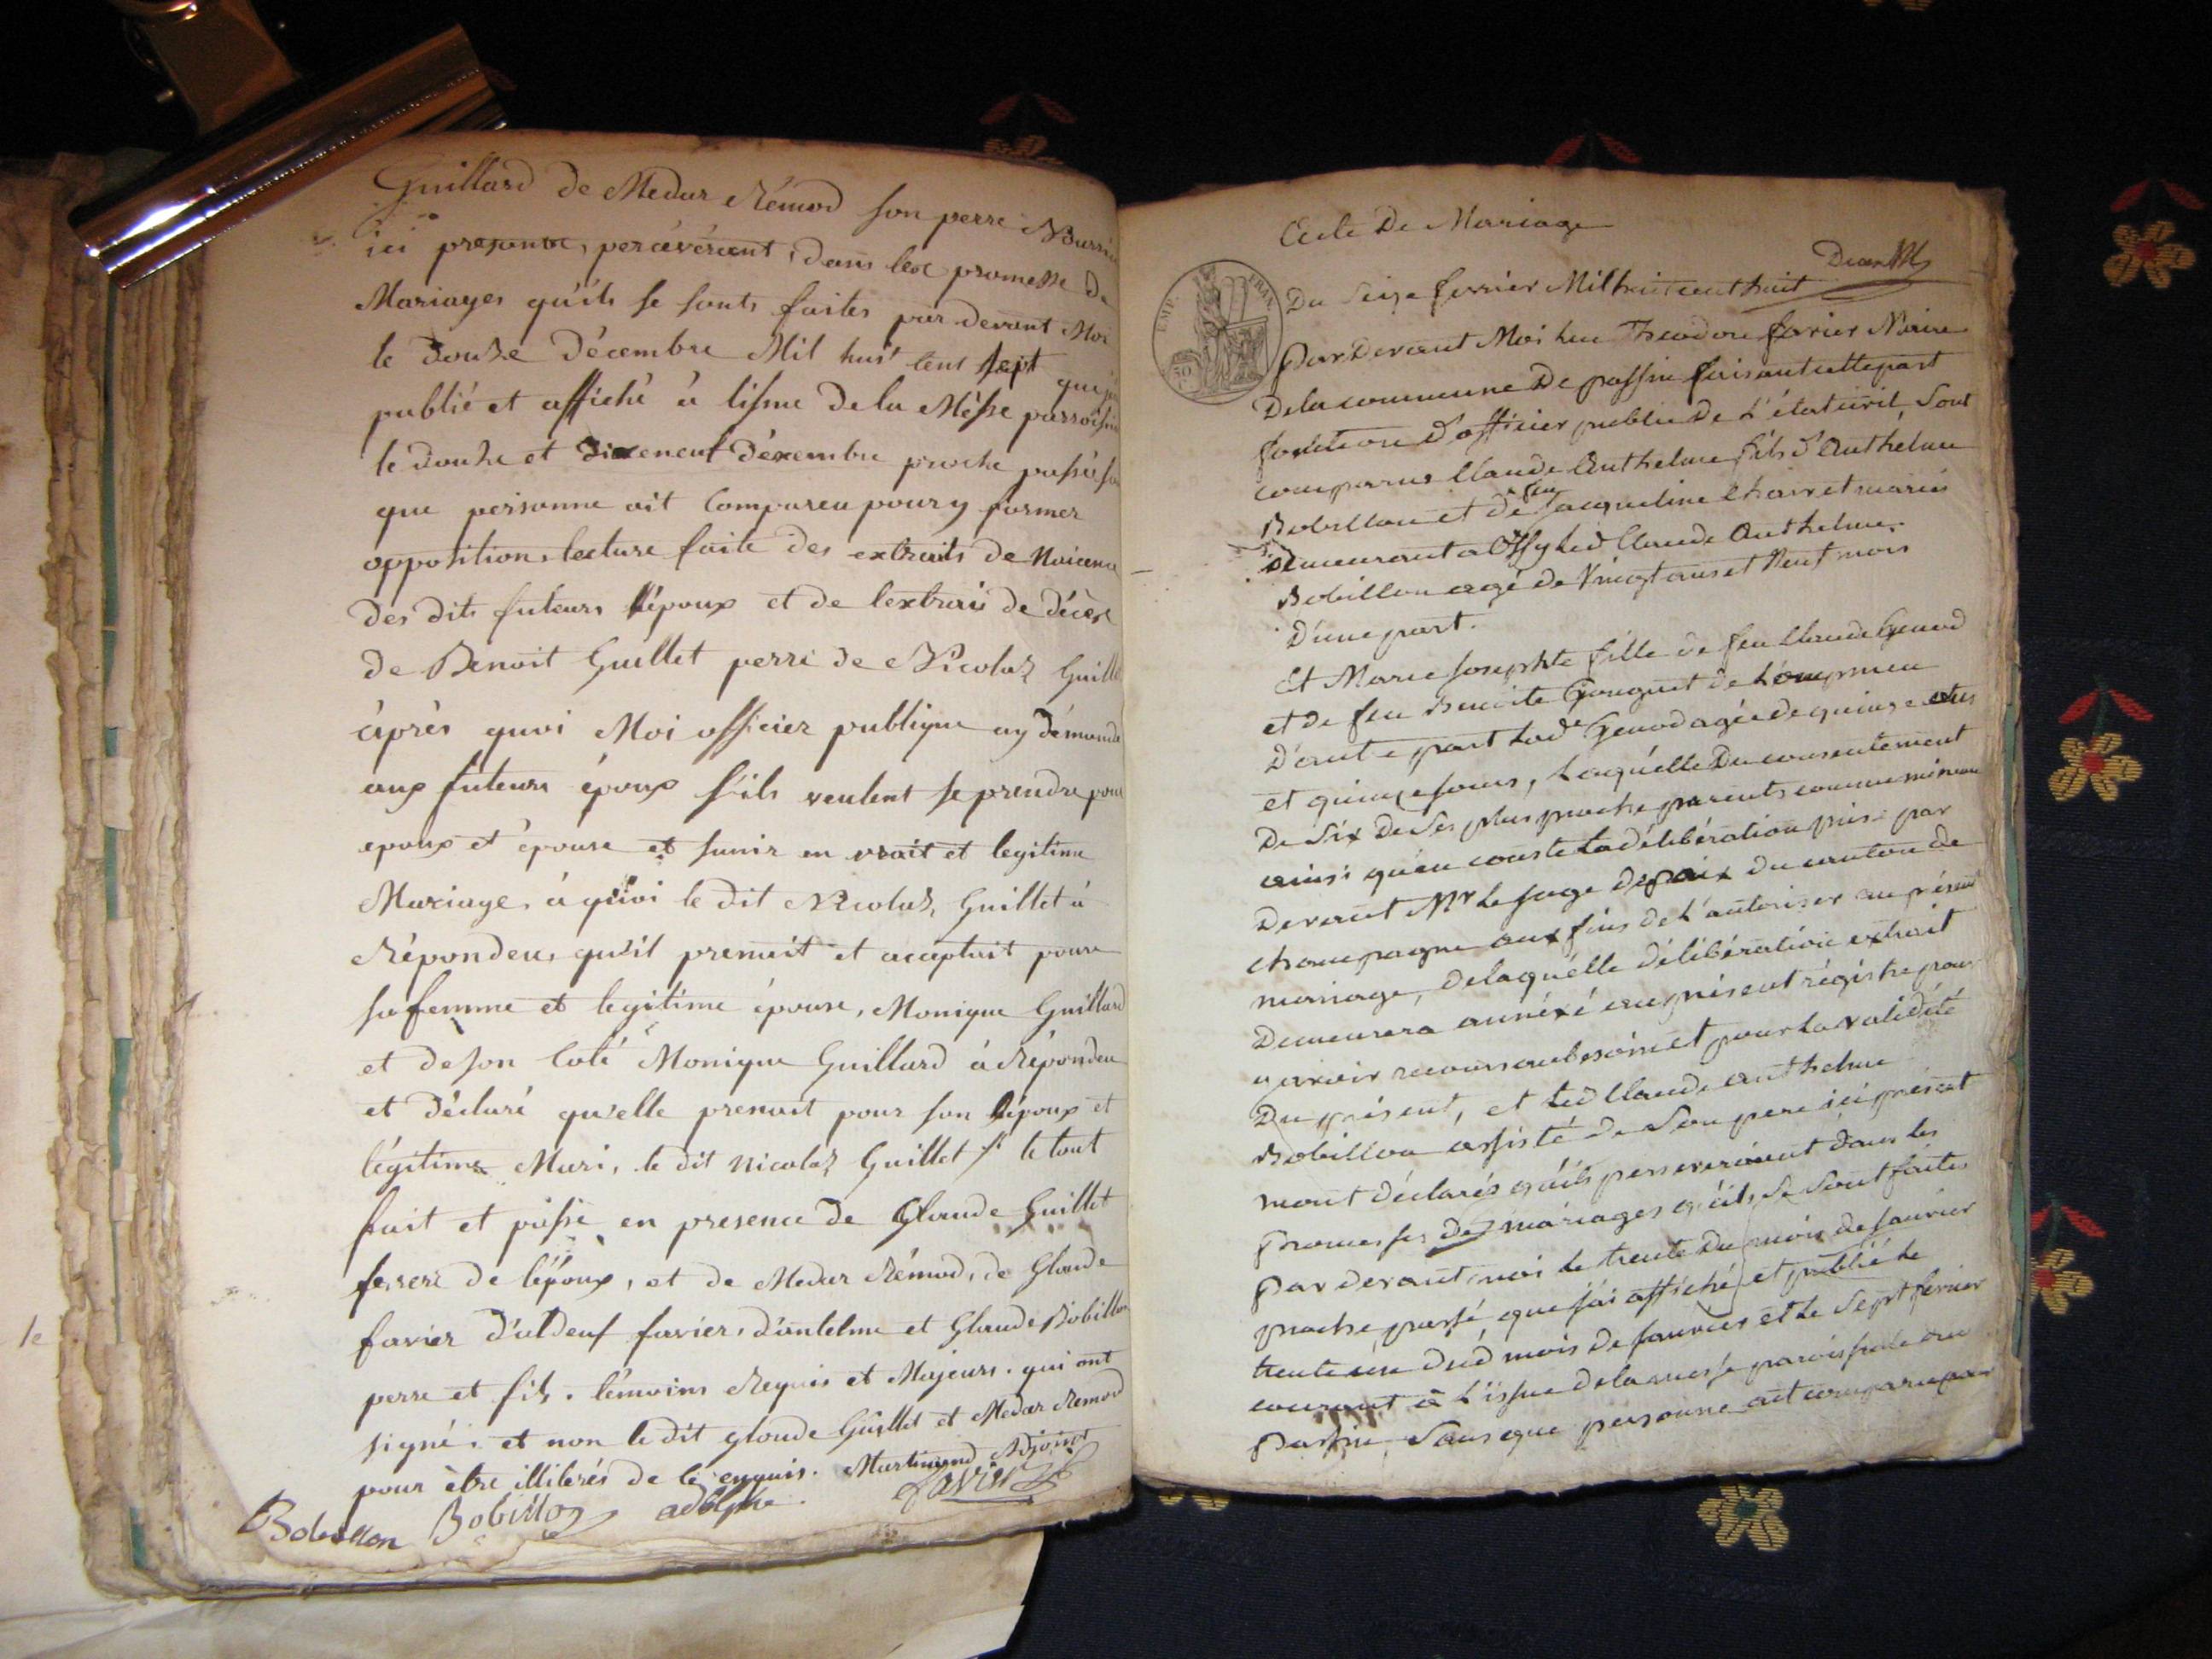 Guillard de Medar Rémond son perre Nourri
ici presante, percévérant, dans les promesse de
Mariages qu'ils se sonts faites par devant Moi
le douze décembre Mil huit cent sept que
publié et affiché à lisme de la Mêsse parroissi
le douze et dixeneuf décembre proche passé sa
que personne ait Compareu pour y former
opposition, lecture faite des extraits de Naicence
des dits futeurs l'époux et de lextrais de décès
de Benoit Guillet perre de Nicolas Guille
âprès quoi Moi officier publique ay démandé
aux futeurs époux s'ils veulent se prendre pour
epoux et épouse et sunir en vrait et legitime
Mariage, à quoi le dit Nicolas, Guillet à
Répondeu, qu'il prenait et acaptait pour
sa femme et legitime épouse, Monique Guillard
et de son Coté Monique Guillard à Répondeu
et déclaré qu'elle prenait pour son l'époux et
légitime Mari, le dit Nicolas Guillet /: le tout
fait et passé en presence de Glaude Guillet
frere de l'époux, et de Medar Rémond, de Glaude
favier d'aldeuf favier, d'antelme et Glaude Bobillon
perre et fils. témoins Requis et Majeurs. qui ont
signé, et non le dit glaude Guillet et Medar Remond
pour être illiterés de ce enquis. Martinand Adjoint
Bobillon Bobillon adolphe favier
le
Acte De Mariage
EMP. FRAN.
50
Du Seize fevrier Mil huit cent huit
Par Devant Moi Luc Theodore favier Maire
De la commune De passin faisant cette part
fonction d'officier public De L'état civil, Sont
comparus Claude Anthelme fils d'Anthelme
Bobillon et de feu Jacqueline Chair et mariés
Demeurant a Ossy Led Claude Anthelme
Bobillon agé de Vingt ans et Neuf mois
D'une part.
Et Marie Josephte fille de feu Claude Genod
et de feu Benoite Gouguet de Lompnieu
D'autre part Lade Genod agée de quinze ans
et quinze jours, Laquelle Du consentement
De Six De Ses plus proche parents comme mineure
ainsi qu'en conste La délibération prise par
Devant Mr Le Juge de paix Du canton de
champagne aux fins de L'autoriser au présent
mariage, De laquelle délibération extrait
Demeurera annéxé au présent régistre pour
y avoir recours au besoin et pour La validité
Du présent, et Led Claude anthelme
Bobillon assisté de Son pere ici présent
m'ont déclarés qu'ils perseveraient dans les
Promesses de mariages qu'ils Se Sont faites
Par devant moi Le trente Du mois de Janvier
proche passé, que j'ai affiché et publié Le
trente un dud mois de Janvier et Le Sept fevrier
courant à L'issue de la messe paroissiale au
Passin, Sans que personne ait comparu pour